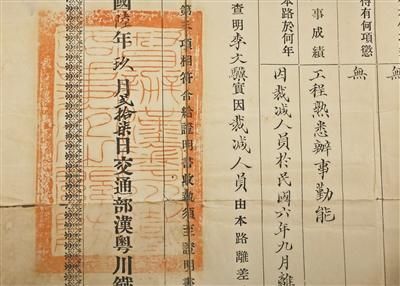 待有何項懲
無
無
事成績
工程熟悉辦事勤能
本路於何年
因裁減人員於民國六年九月離
查明李文驥實因裁減人員由本路離差
第三項相符合給證明書收執須至證明書
國陸年玖月貳拾柒日交通部漢粵川鐵